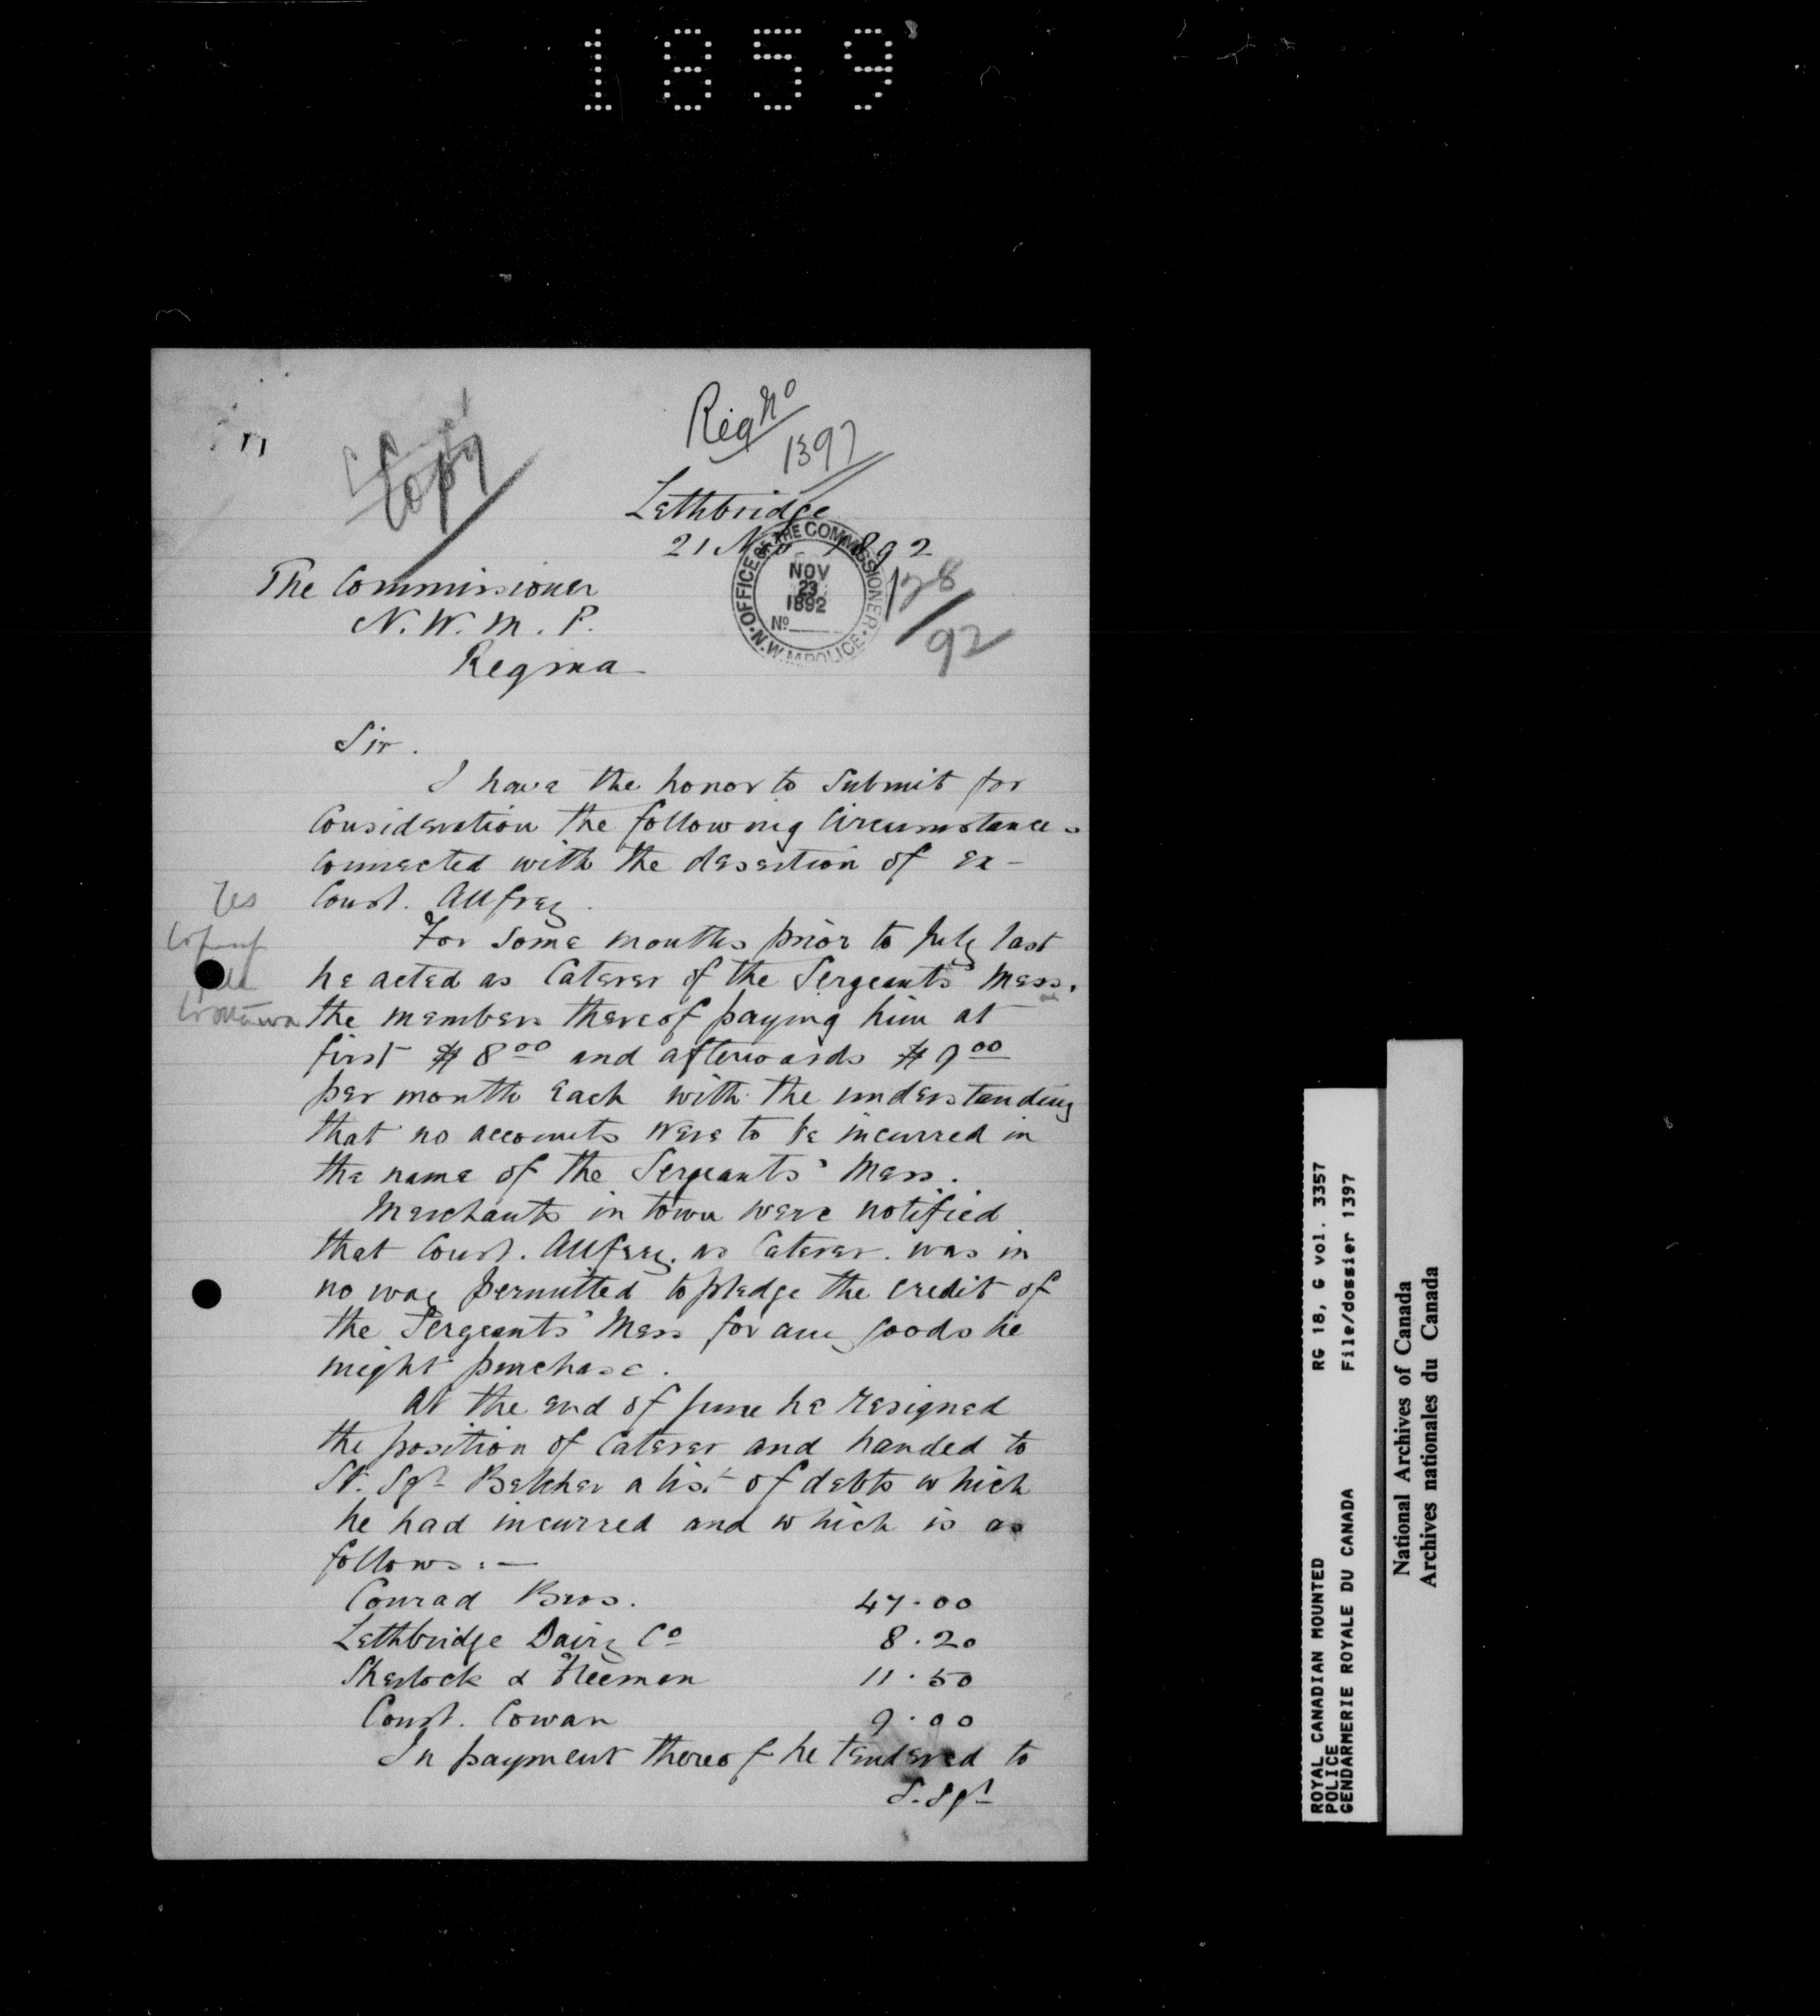 1859
Copy
Reg No
1397
Lethbridge
21 Nov 1892
OFFICE OF THE COMMISSIONER
NOV
23
1892
No
N.W.M. POLICE
128/92
The Commissioner
N.W.M.P.
Regina
Sir.
I have the honor to submit for
Consideration the following Circumstances
Connected with the desertion of ex-
Const. Allfrey.
Yes
For some months prior to July last
he acted as Caterer of the Sergeants' Mess,
the members thereof paying him at
first $8 00 and afterwards $9 00
per month each with the understanding
that no accounts were to be incurred in
the name of the Sergeants' Mess.
Merchants in town were notified
that Const. Allfrey. as Caterer. was in
no way permitted to pledge the credit of
the Sergeants' Mess for any goods he
might purchase.
At the end of June he resigned
the position of Caterer and handed to
St. Sgt Belcher a list of debts which
he had incurred and which is as
follows:—
Conrad Bros. 47.00
Lethbridge Dairy Co 8.20
Sherlock & Freeman 11.50
Const. Cowan 9.00
In payment thereof he tendered to
S. Sgt
ROYAL CANADIAN MOUNTED RG 18, G vol. 3357
POLICE
GENDARMERIE ROYALE DU CANADA File/dossier 1397
National Archives of Canada
Archives nationales du Canada